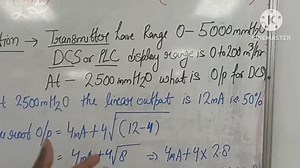 tion → Transmitter have Range 0-5000mmH2O
DCS or PLC display range is 0 to 200m³/hr
At - 2500mmH2O what is O/p for DCS
t 2500mmH2O the linear output is 12mA i.e 50%
reroot O/p = 4mA+4√(12-4)
= 4mA+4√8 ⇒ 4mA+4×2.8